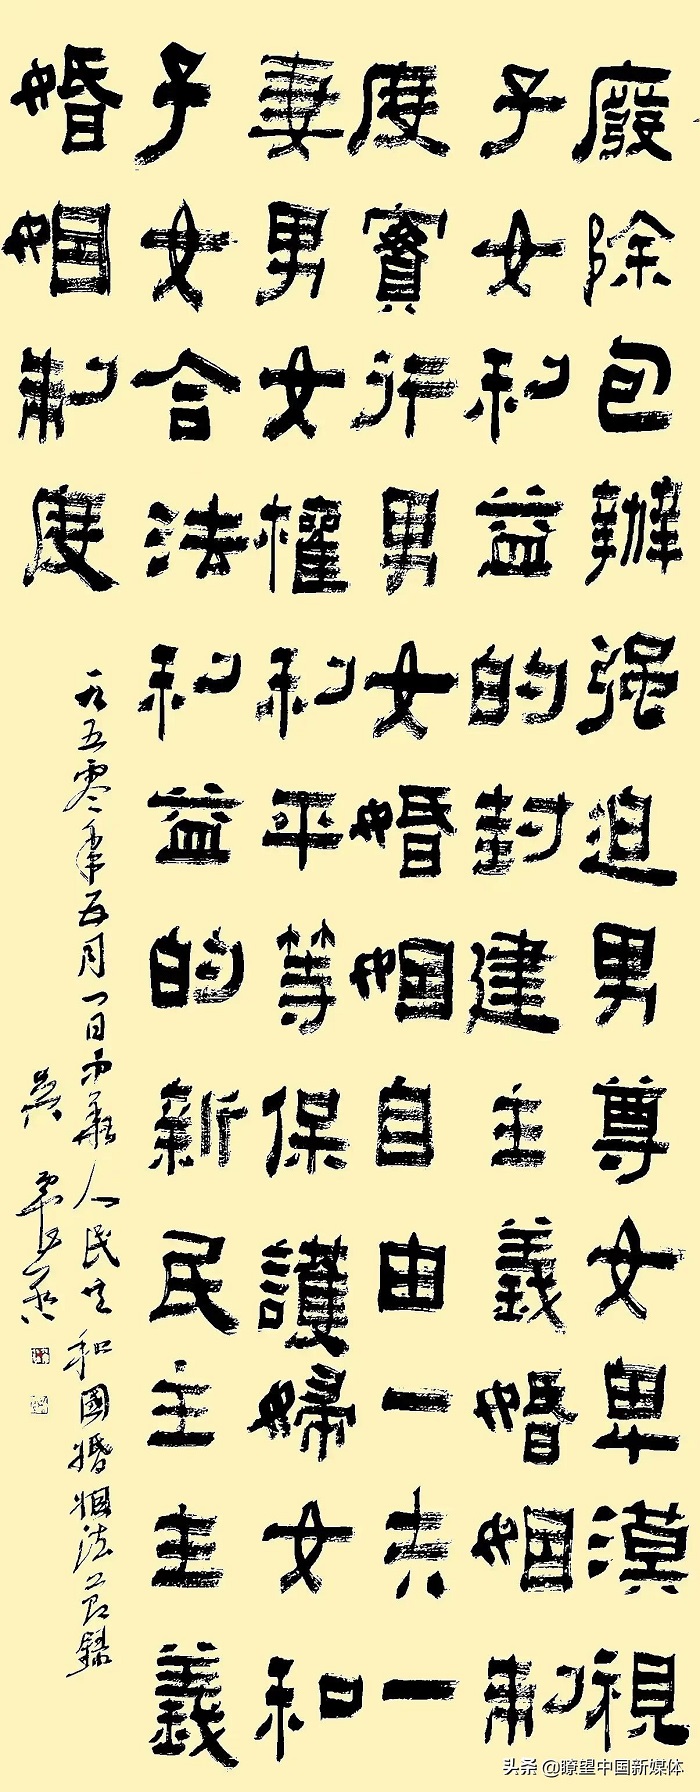 廢除包辦强迫男尊女卑漠視
子女利益的封建主義婚姻制
度實行男女婚姻自由一夫一
妻男女權利平等保護婦女和
子女合法利益的新民主主義
婚姻制度
一九五零年五月一日中華人民共和國婚姻法节錄
头条 @瞭望中国新媒体